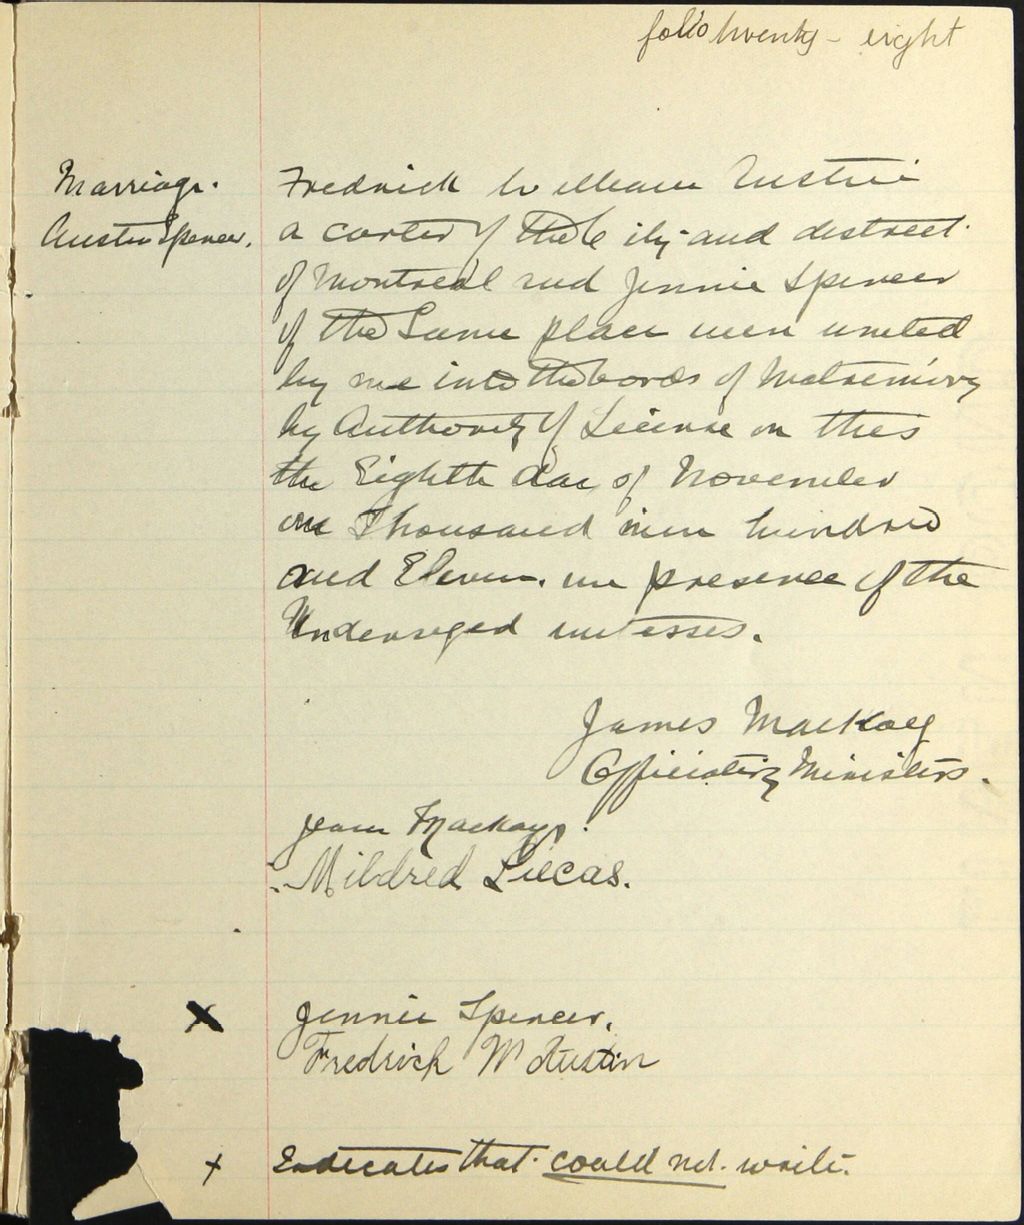 folio twenty-eight
Marriage.
Austin Spencer.
Fredrick William Austin
a carter of the City and district
of Montreal and Jennie Spencer
of the Same place were united
by me into the bonds of Matrimony
by Authority of License on this
the Eighth day of November
one Thousand nine hundred
and Eleven. in presence of the
Undersiged witesses.
James Mackay
Officiating Minister.
Jean Mackay.
Mildred Lucas.
X Jennie Spencer.
Fredrick W Austin
x Indicates that could not write.